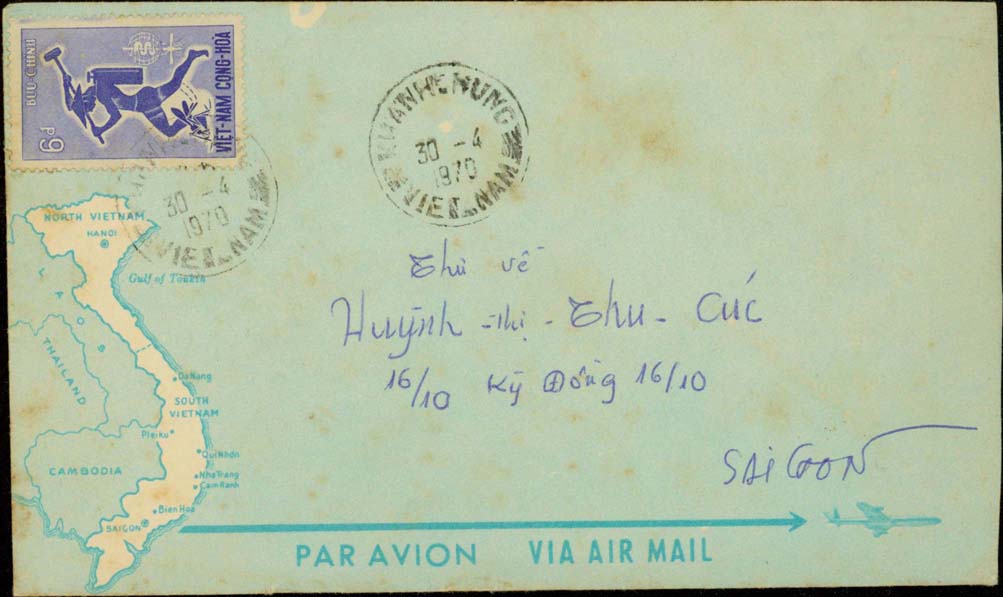 BƯU-CHÍNH
VIỆT-NAM CỘNG-HÒA
6đ
KHANHHUNG
30 - 4
1970
VIET-NAM
30 - 4
1970
VIET-NAM
Thư về
Huỳnh - thị - Thu - Cúc
16/10 Kỳ Đồng 16/10
SAIGON
NORTH VIETNAM
HANOI
Gulf of Tonkin
LAOS
THAILAND
DaNang
SOUTH
VIETNAM
Pleiku
QuiNhơn
CAMBODIA
NhaTrang
CamRanh
Bien Hoa
SAIGON
PAR AVION VIA AIR MAIL